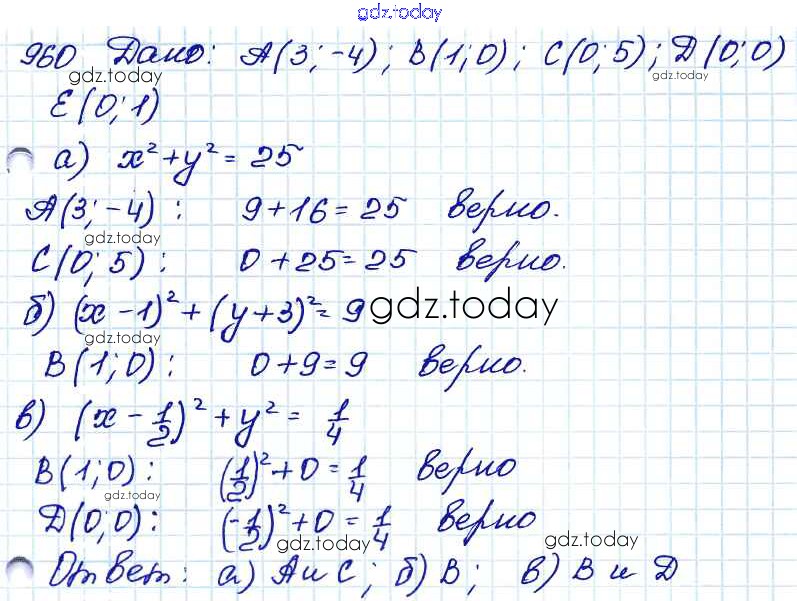 gdz.today
960 Дано: A(3;-4); B(1;0); C(0;5); D(0;0)
gdz.today gdz.today
E(0;1)
а) x²+y²= 25
A(3;-4): 9+16=25 верно.
gdz.today
C(0;5): 0+25=25 верно.
б) (x-1)²+(y+3)²=9 gdz.today
gdz.today
B(1;0): 0+9=9 верно.
в) (x-1/2)²+y²= 1/4
B(1;0): (1/2)²+0=1/4 верно
gdz.today
D(0;0): (-1/2)²+0=1/4 верно
gdz.today gdz.today
Ответ: а) A и C; б) B; в) B и D